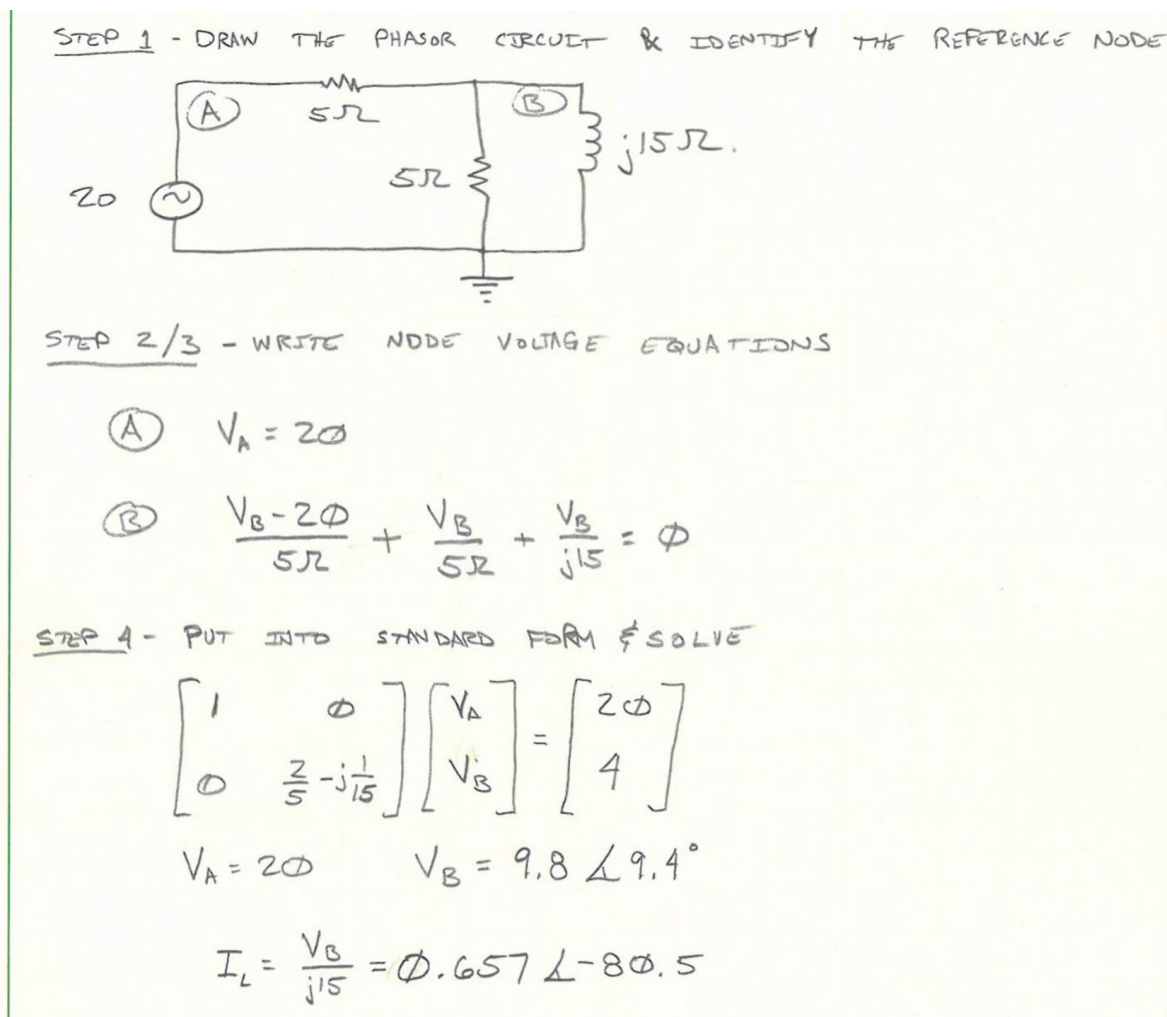 STEP 1 - DRAW THE PHASOR CIRCUIT & IDENTIFY THE REFERENCE NODE
A
5Ω
B
j15Ω.
5Ω
20
STEP 2/3 - WRITE NODE VOLTAGE EQUATIONS
A V_A = 20
B (V_B - 20)/5Ω + V_B/5Ω + V_B/j15 = 0
STEP 4 - PUT INTO STANDARD FORM & SOLVE
[1 0; 0 2/5 - j1/15] [V_A; V_B] = [20; 4]
V_A = 20 V_B = 9.8 ∠9.4°
I_L = V_B/j15 = 0.657 ∠-80.5